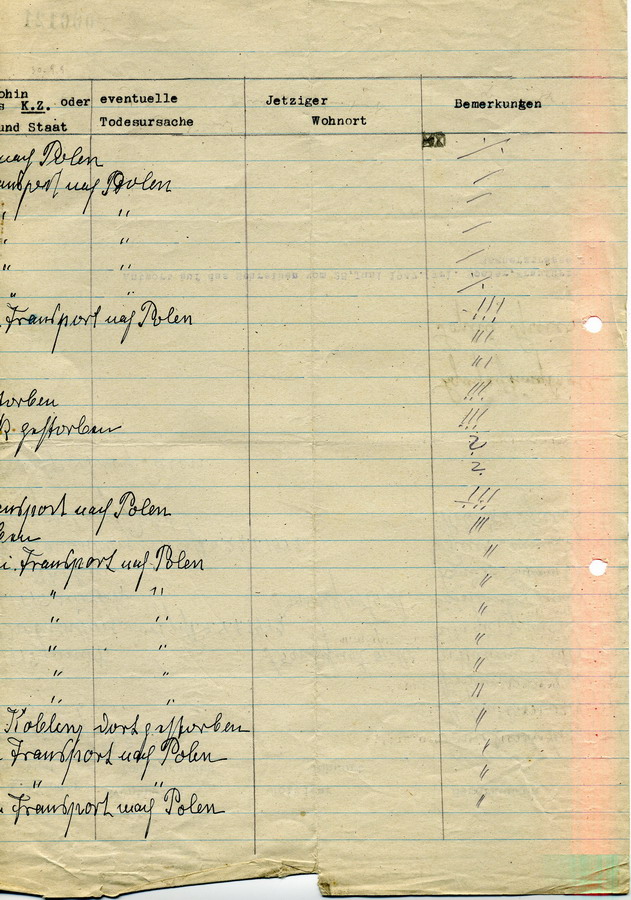 ohin
s K.Z. oder eventuelle Jetziger Bemerkungen
und Staat Todesursache Wohnort
nach Polen
ansport nach Polen
" "
" "
" "
" "
Transport nach Polen !!!
"
"
torben
gestorben
?
?
ansport nach Polen !!!
ben "
i. Transport nach Polen "
" " "
" " "
" " "
" " "
" " "
Koblenz dort gestorben "
Transport nach Polen "
" " "
Transport nach Polen "